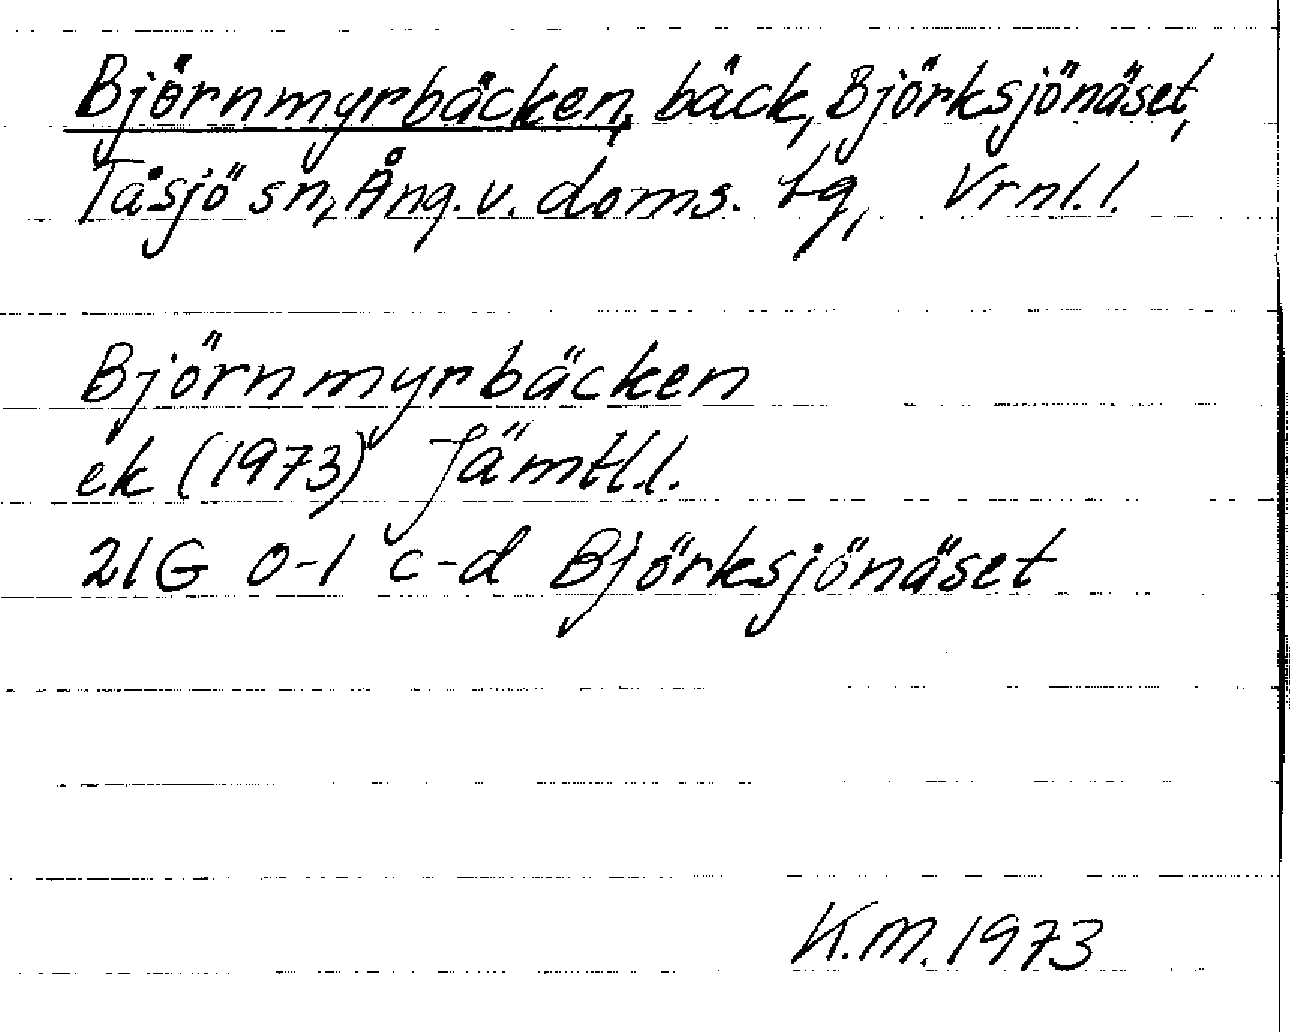 Björnmyrbäcken, bäck, Björksjönäset,
Tåsjö sn, Ång. v. doms. tg, Vrnl.l.
Björnmyrbäcken
ek (1973) Jämtl.l.
21G 0-1 c-d Björksjönäset
K.M. 1973